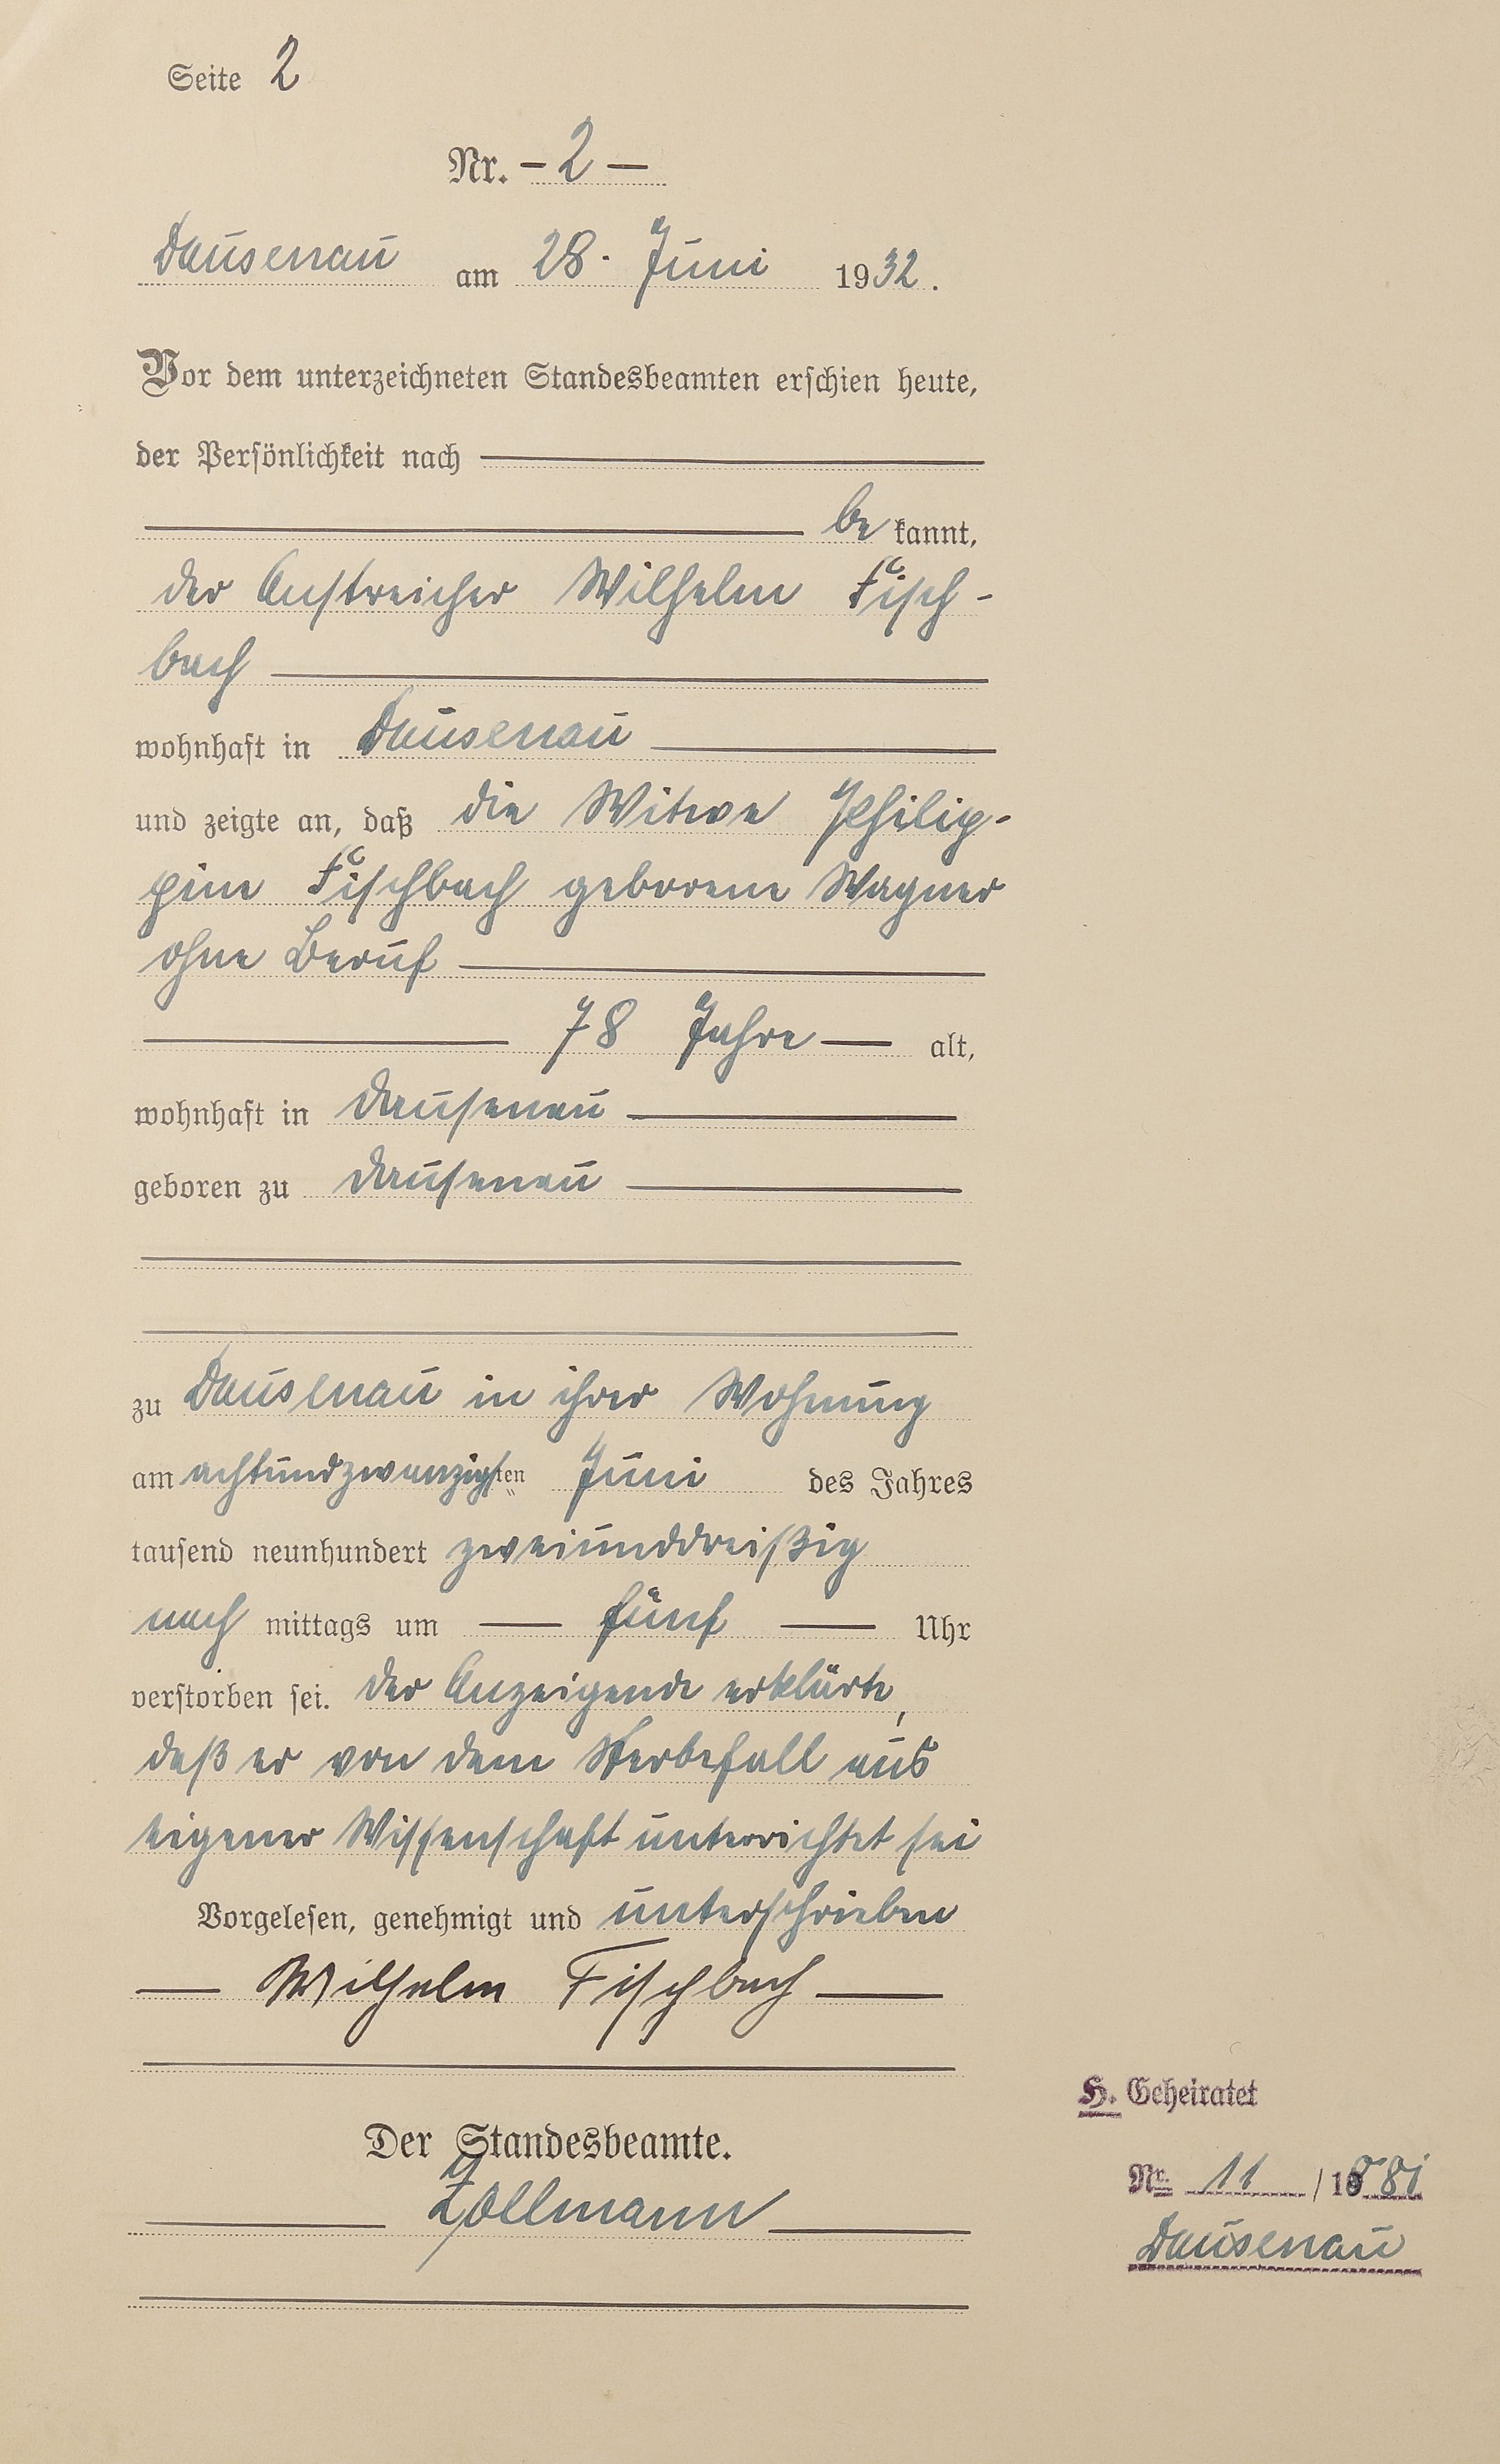 Seite 2
Nr. - 2 -
Dausenau am 28. Juni 1932.
Vor dem unterzeichneten Standesbeamten erschien heute,
der Persönlichkeit nach
be kannt,
der Anstreicher Wilhelm Fisch-
bach
wohnhaft in Dausenau
und zeigte an, daß die Witwe Philip-
pine Fischbach geborene Wagner
ohne Beruf
78 Jahre alt,
wohnhaft in Dausenau
geboren zu Dausenau
zu Dausenau in ihrer Wohnung
am achtundzwanzigsten Juni des Jahres
tausend neunhundert zweiunddreißig
nach mittags um fünf Uhr
verstorben sei. Der Anzeigende erklärte,
daß er von dem Sterbefall aus
eigener Wissenschaft unterrichtet sei
Vorgelesen, genehmigt und unterschrieben
Wilhelm Fischbach
Der Standesbeamte.
Zollmann
H. Geheiratet
Nr. 11 / 1881
Dausenau